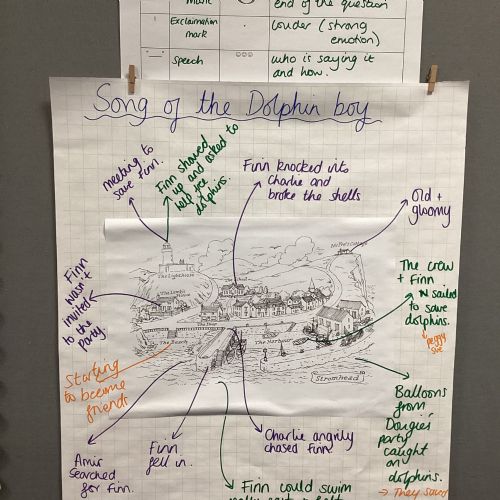 end of the question
Exclamation mark
louder (strong emotion)
Speech
who is saying it and how.
Song of the Dolphin boy
meeting to save Finn.
Finn showed up and asked to help free dolphins.
Finn knocked into
Charlie and
broke the shells
Old +
gloomy
Finn
wasn't
invited
to the
party
The Lighthouse
The Beach
The Harbour
Stromhead
The crew
+ Finn
sailed
to save
dolphins.
Peggy
Sue
Starting
to become
friends
Amir
searched
for Finn.
Finn
fell in.
Charlie angrily
chased Finn.
Balloons
from
Dougie's
party
caught
on
dolphins.
Finn could swim
→ They saw